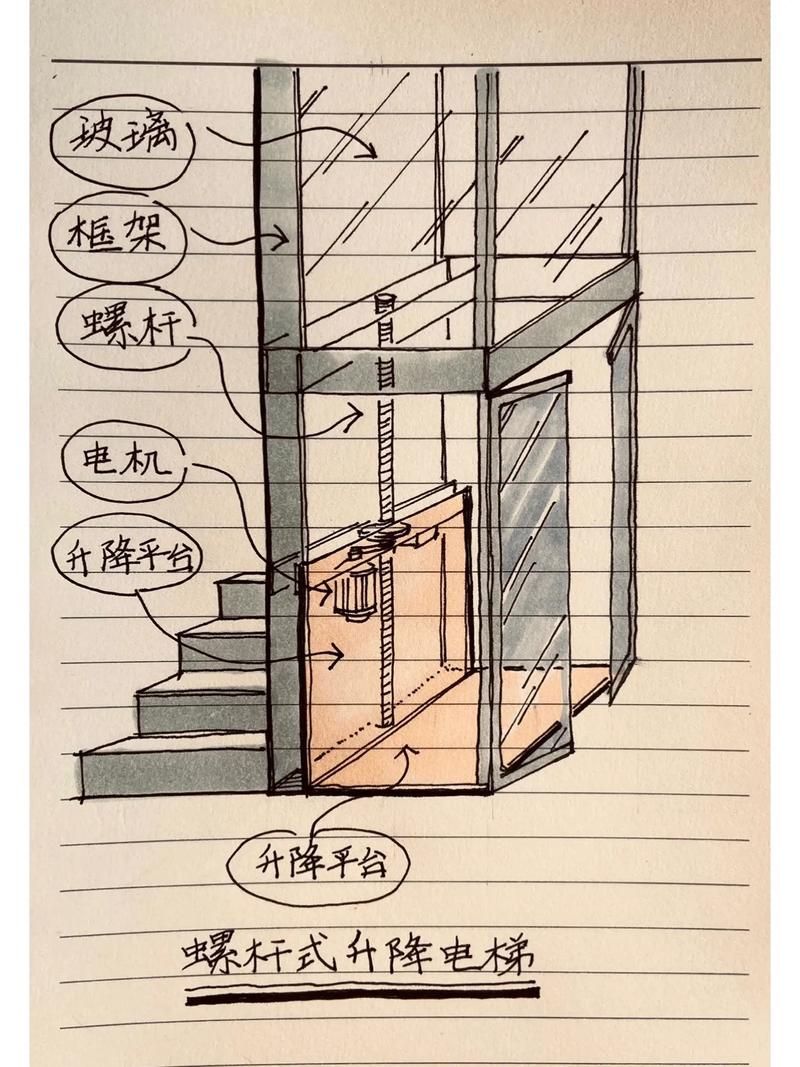 玻璃
框架
螺杆
电机
升降平台
升降平台
螺杆式升降电梯